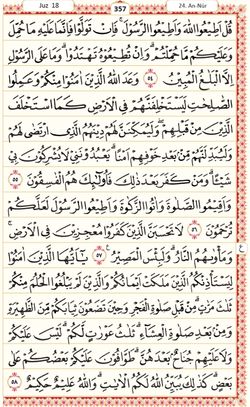 Juz 18
357
24. An-Nūr
قُلْ اَطِيْعُوا اللّٰهَ وَاَطِيْعُوا الرَّسُوْلَۚ فَاِنْ تَوَلَّوْا فَاِنَّمَا عَلَيْهِ مَا حُمِّلَ
وَعَلَيْكُمْ مَّا حُمِّلْتُمْۗ وَاِنْ تُطِيْعُوْهُ تَهْتَدُوْاۗ وَمَا عَلَى الرَّسُوْلِ
اِلَّا الْبَلٰغُ الْمُبِيْنُ ٥٤ وَعَدَ اللّٰهُ الَّذِيْنَ اٰمَنُوْا مِنْكُمْ وَعَمِلُوا
الصّٰلِحٰتِ لَيَسْتَخْلِفَنَّهُمْ فِى الْاَرْضِ كَمَا اسْتَخْلَفَ
الَّذِيْنَ مِنْ قَبْلِهِمْۖ وَلَيُمَكِّنَنَّ لَهُمْ دِيْنَهُمُ الَّذِى ارْتَضٰى لَهُمْ
وَلَيُبَدِّلَنَّهُمْ مِّنْۢ بَعْدِ خَوْفِهِمْ اَمْنًاۗ يَعْبُدُوْنَنِيْ لَا يُشْرِكُوْنَ بِيْ
شَيْـًٔاۗ وَمَنْ كَفَرَ بَعْدَ ذٰلِكَ فَاُولٰۤىِٕكَ هُمُ الْفٰسِقُوْنَ ٥٥
وَاَقِيْمُوا الصَّلٰوةَ وَاٰتُوا الزَّكٰوةَ وَاَطِيْعُوا الرَّسُوْلَ لَعَلَّكُمْ
تُرْحَمُوْنَ ٥٦ لَا تَحْسَبَنَّ الَّذِيْنَ كَفَرُوْا مُعْجِزِيْنَ فِى الْاَرْضِۚ
وَمَأْوٰىهُمُ النَّارُۗ وَلَبِئْسَ الْمَصِيْرُ ٥٧ يٰٓاَيُّهَا الَّذِيْنَ اٰمَنُوْا
لِيَسْتَأْذِنْكُمُ الَّذِيْنَ مَلَكَتْ اَيْمَانُكُمْ وَالَّذِيْنَ لَمْ يَبْلُغُوا الْحُلُمَ مِنْكُمْ
ثَلٰثَ مَرّٰتٍۗ مِنْ قَبْلِ صَلٰوةِ الْفَجْرِ وَحِيْنَ تَضَعُوْنَ ثِيَابَكُمْ مِّنَ الظَّهِيْرَةِ
وَمِنْۢ بَعْدِ صَلٰوةِ الْعِشَاۤءِۗ ثَلٰثُ عَوْرٰتٍ لَّكُمْۗ لَيْسَ عَلَيْكُمْ
وَلَا عَلَيْهِمْ جُنَاحٌۢ بَعْدَهُنَّۗ طَوَّافُوْنَ عَلَيْكُمْ بَعْضُكُمْ عَلٰى
بَعْضٍۗ كَذٰلِكَ يُبَيِّنُ اللّٰهُ لَكُمُ الْاٰيٰتِۗ وَاللّٰهُ عَلِيْمٌ حَكِيْمٌ ٥٨